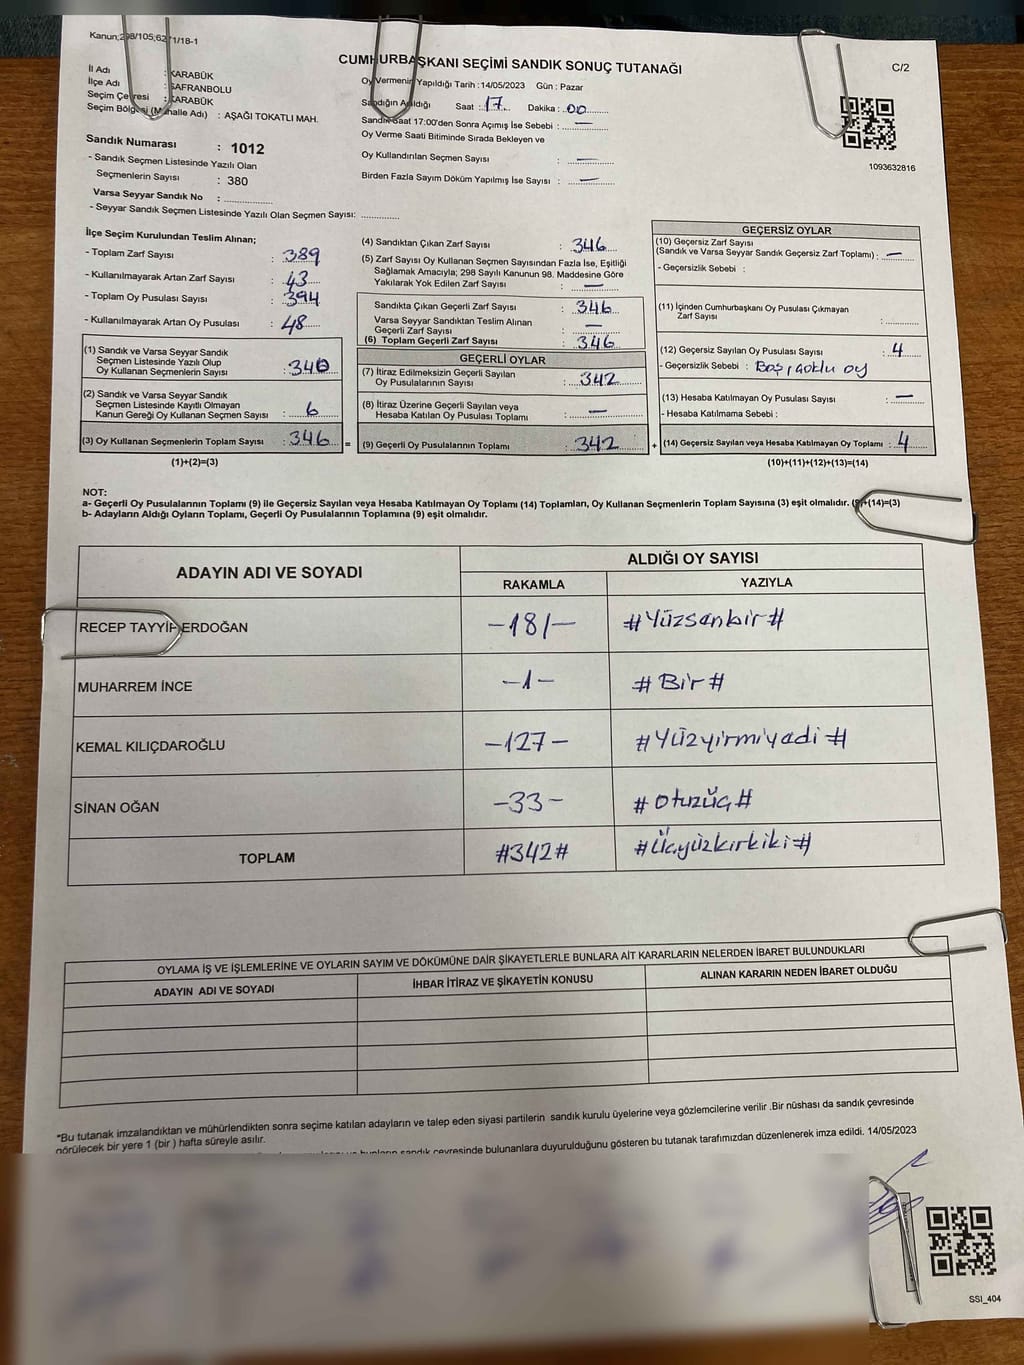 Kanun;298/105;6271/18-1
C/2
CUMHURBAŞKANI SEÇİMİ SANDIK SONUÇ TUTANAĞI
İl Adı : KARABÜK
İlçe Adı : SAFRANBOLU
Seçim Çevresi : KARABÜK
Seçim Bölgesi (Mahalle Adı) : AŞAĞI TOKATLI MAH.
Sandık Numarası : 1012
- Sandık Seçmen Listesinde Yazılı Olan
Seçmenlerin Sayısı : 380
Varsa Seyyar Sandık No : ..............
- Seyyar Sandık Seçmen Listesinde Yazılı Olan Seçmen Sayısı: ............
Oy Vermenin Yapıldığı Tarih :14/05/2023 Gün : Pazar
Sandığın Açıldığı Saat : 17 Dakika : 00
Sandık Saat 17:00'den Sonra Açımış İse Sebebi : —
Oy Verme Saati Bitiminde Sırada Bekleyen ve
Oy Kullandırılan Seçmen Sayısı : —
Birden Fazla Sayım Döküm Yapılmış İse Sayısı : —
1093632816
İlçe Seçim Kurulundan Teslim Alınan;
- Toplam Zarf Sayısı : 389
- Kullanılmayarak Artan Zarf Sayısı : 43
- Toplam Oy Pusulası Sayısı : 394
- Kullanılmayarak Artan Oy Pusulası : 48
(1) Sandık ve Varsa Seyyar Sandık
Seçmen Listesinde Yazılı Olup
Oy Kullanan Seçmenlerin Sayısı : 340
(2) Sandık ve Varsa Seyyar Sandık
Seçmen Listesinde Kayıtlı Olmayan
Kanun Gereği Oy Kullanan Seçmen Sayısı : 6
(3) Oy Kullanan Seçmenlerin Toplam Sayısı : 346 =
(1)+(2)=(3)
(4) Sandıktan Çıkan Zarf Sayısı : 346
(5) Zarf Sayısı Oy Kullanan Seçmen Sayısından Fazla İse, Eşitliği
Sağlamak Amacıyla; 298 Sayılı Kanunun 98. Maddesine Göre
Yakılarak Yok Edilen Zarf Sayısı : —
Sandıkta Çıkan Geçerli Zarf Sayısı : 346
Varsa Seyyar Sandıktan Teslim Alınan
Geçerli Zarf Sayısı : —
(6) Toplam Geçerli Zarf Sayısı : 346
GEÇERLİ OYLAR
(7) İtiraz Edilmeksizin Geçerli Sayılan
Oy Pusulalarının Sayısı : 342
(8) İtiraz Üzerine Geçerli Sayılan veya
Hesaba Katılan Oy Pusulaları Toplamı : —
(9) Geçerli Oy Pusulalarının Toplamı : 342 +
GEÇERSİZ OYLAR
(10) Geçersiz Zarf Sayısı
(Sandık ve Varsa Seyyar Sandık Geçersiz Zarf Toplamı) : —
- Geçersizlik Sebebi :
(11) İçinden Cumhurbaşkanı Oy Pusulası Çıkmayan
Zarf Sayısı : ............
(12) Geçersiz Sayılan Oy Pusulası Sayısı : 4
- Geçersizlik Sebebi :
(13) Hesaba Katılmayan Oy Pusulası Sayısı : —
- Hesaba Katılmama Sebebi :
(14) Geçersiz Sayılan veya Hesaba Katılmayan Oy Toplamı : 4
(10)+(11)+(12)+(13)=(14)
NOT:
a- Geçerli Oy Pusulalarının Toplamı (9) ile Geçersiz Sayılan veya Hesaba Katılmayan Oy Toplamı (14) Toplamları, Oy Kullanan Seçmenlerin Toplam Sayısına (3) eşit olmalıdır. (9)+(14)=(3)
b- Adayların Aldığı Oyların Toplamı, Geçerli Oy Pusulalarının Toplamına (9) eşit olmalıdır.
ADAYIN ADI VE SOYADI ALDIĞI OY SAYISI
RAKAMLA YAZIYLA
RECEP TAYYİP ERDOĞAN -181- #Yüzsenbir#
MUHARREM İNCE -1- #Bir#
KEMAL KILIÇDAROĞLU -127- #Yüzyirmiyedi#
SİNAN OĞAN -33- #otuzüç#
TOPLAM #342# #Üçyüzkırkiki#
OYLAMA İŞ VE İŞLEMLERİNE VE OYLARIN SAYIM VE DÖKÜMÜNE DAİR ŞİKAYETLERLE BUNLARA AİT KARARLARIN NELERDEN İBARET BULUNDUKLARI
ADAYIN ADI VE SOYADI İHBAR İTİRAZ VE ŞİKAYETİN KONUSU ALINAN KARARIN NEDEN İBARET OLDUĞU
*Bu tutanak imzalandıktan ve mühürlendikten sonra seçime katılan adayların ve talep eden siyasi partilerin sandık kurulu üyelerine veya gözlemcilerine verilir .Bir nüshası da sandık çevresinde
görülecek bir yere 1 (bir ) hafta süreyle asılır.
sandık çevresinde bulunanlara duyurulduğunu gösteren bu tutanak tarafımızdan düzenlenerek imza edildi. 14/05/2023
SSI_404